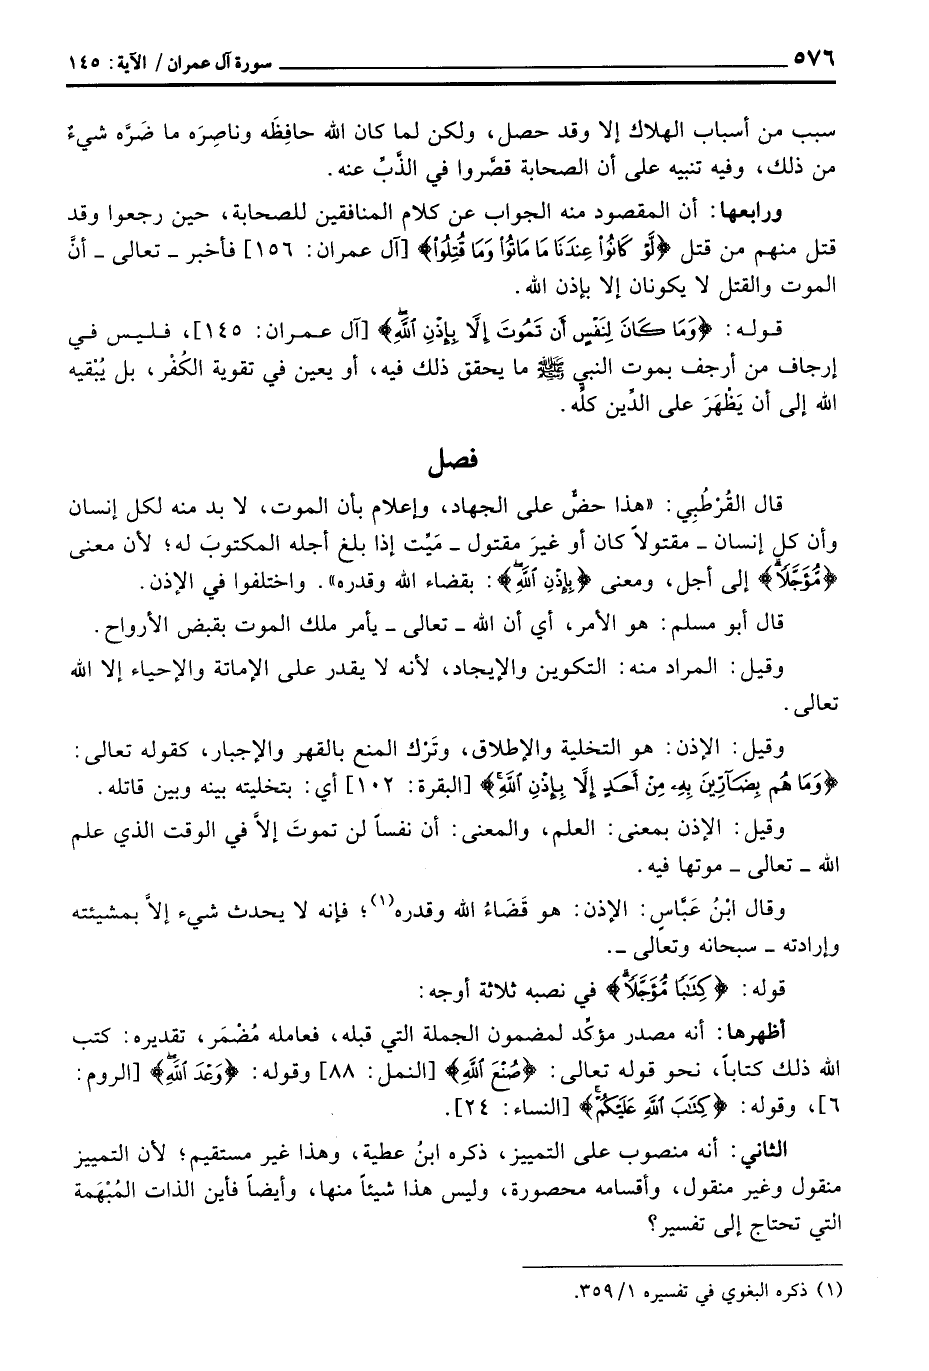 ٥٧٦ سورة آل عمران / الآية: ١٤٥
سبب من أسباب الهلاك إلا وقد حصل، ولكن لما كان الله حافِظَه وناصِرَه ما ضَرَّه شيءٌ
من ذلك، وفيه تنبيه على أن الصحابة قصَّروا في الذَّبِّ عنه.
ورابعها: أن المقصود منه الجواب عن كلام المنافقين للصحابة، حين رجعوا وقد
قتل منهم من قتل ﴿لَّوْ كَانُوا۟ عِندَنَا مَا مَاتُوا۟ وَمَا قُتِلُوا۟﴾ [آل عمران: ١٥٦] فأخبر ـ تعالى ـ أنَّ
الموت والقتل لا يكونان إلا بإذن الله.
قوله: ﴿وَمَا كَانَ لِنَفْسٍ أَن تَمُوتَ إِلَّا بِإِذْنِ ٱللَّهِ﴾ [آل عمران: ١٤٥]، فليس في
إرجاف من أرجف بموت النبي ﷺ ما يحقق ذلك فيه، أو يعين في تقوية الكُفْر، بل يُبْقيه
الله إلى أن يَظْهَرَ على الدِّين كلِّه.
فصل
قال القُرْطُبِي: «هذا حضٌّ على الجهاد، وإعلام بأن الموت، لا بد منه لكل إنسان
وأن كل إنسان ـ مقتولاً كان أو غيرَ مقتول ـ مَيِّت إذا بلغ أجله المكتوبَ له؛ لأن معنى
﴿مُّؤَجَّلًا﴾ إلى أجل، ومعنى ﴿بِإِذْنِ ٱللَّهِ﴾: بقضاء الله وقدره». واختلفوا في الإذن.
قال أبو مسلم: هو الأمر، أي أن الله ـ تعالى ـ يأمر ملك الموت بقبض الأرواح.
وقيل: المراد منه: التكوين والإيجاد، لأنه لا يقدر على الإماتة والإحياء إلا الله
تعالى.
وقيل: الإذن: هو التخلية والإطلاق، وتَرْك المنع بالقهر والإجبار، كقوله تعالى:
﴿وَمَا هُم بِضَآرِّينَ بِهِۦ مِنْ أَحَدٍ إِلَّا بِإِذْنِ ٱللَّهِ﴾ [البقرة: ١٠٢] أي: بتخليته بينه وبين قاتله.
وقيل: الإذن بمعنى: العلم، والمعنى: أن نفساً لن تموتَ إلاَّ في الوقت الذي علم
الله ـ تعالى ـ موتها فيه.
وقال ابْنُ عَبَّاسٍ: الإذن: هو قَضَاءُ الله وقدره(١)؛ فإنه لا يحدث شيء إلاَّ بمشيئته
وإرادته ـ سبحانه وتعالى ـ.
قوله: ﴿كِتَٰبًا مُّؤَجَّلًا﴾ في نصبه ثلاثة أوجه:
أظهرها: أنه مصدر مؤكِّد لمضمون الجملة التي قبله، فعامله مُضْمَر، تقديره: كتب
الله ذلك كتاباً، نحو قوله تعالى: ﴿صُنْعَ ٱللَّهِ﴾ [النمل: ٨٨] وقوله: ﴿وَعْدَ ٱللَّهِ﴾ [الروم:
٦]، وقوله: ﴿كِتَٰبَ ٱللَّهِ عَلَيْكُمْ﴾ [النساء: ٢٤].
الثاني: أنه منصوب على التمييز، ذكره ابنُ عطية، وهذا غير مستقيم؛ لأن التمييز
منقول وغير منقول، وأقسامه محصورة، وليس هذا شيئاً منها، وأيضاً فأين الذات المُبْهَمة
التي تحتاج إلى تفسير؟
(١) ذكره البغوي في تفسيره ٣٥٩/١.